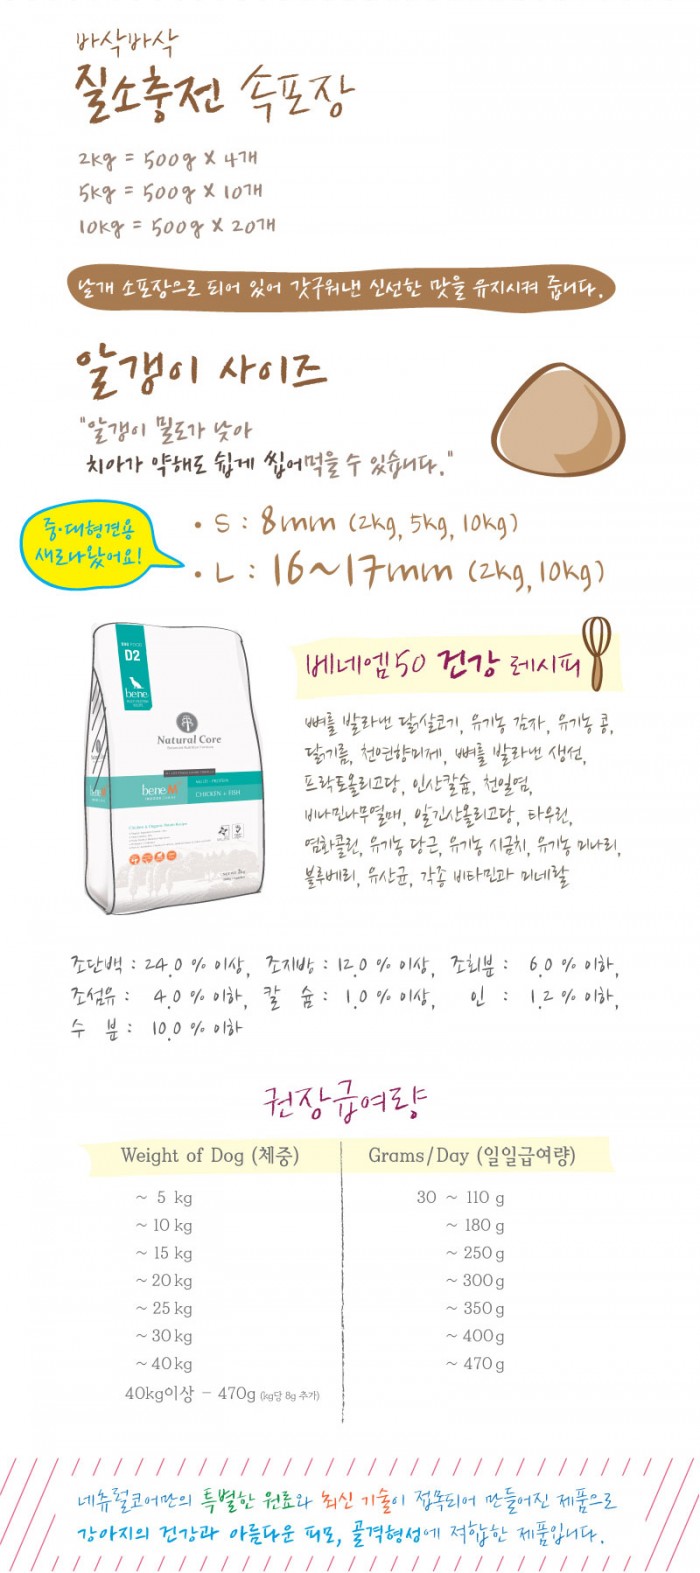 바삭바삭
질소충전 속포장
2kg = 500g X 4개
5kg = 500g X 10개
10kg = 500g X 20개
낱개 소포장으로 되어 있어 갓구워낸 신선한 맛을 유지시켜 줍니다.
알갱이 사이즈
"알갱이 밀도가 낮아
치아가 약해도 쉽게 씹어먹을 수 있습니다."
중·대형견용
새로나왔어요!
• S : 8mm (2kg, 5kg, 10kg)
• L : 16~17mm (2kg, 10kg)
D2
bene
Natural Core
bene M
CHICKEN + FISH
베네엠50 건강 레시피
뼈를 발라낸 닭살코기, 유기농 감자, 유기농 콩,
닭기름, 천연향미제, 뼈를 발라낸 생선,
프락토올리고당, 인산칼슘, 천일염,
비나민나무열매, 알긴산올리고당, 타우린,
염화콜린, 유기농 당근, 유기농 시금치, 유기농 미나리,
블루베리, 유산균, 각종 비타민과 미네랄
조단백 : 24.0 % 이상, 조지방 : 12.0 % 이상, 조회분 : 6.0 % 이하,
조섬유 : 4.0 % 이하, 칼 슘 : 1.0 % 이상, 인 : 1.2 % 이하,
수 분 : 10.0 % 이하
권장급여량
Weight of Dog (체중) Grams/Day (일일급여량)
~ 5 kg 30 ~ 110 g
~ 10 kg ~ 180 g
~ 15 kg ~ 250 g
~ 20 kg ~ 300 g
~ 25 kg ~ 350 g
~ 30 kg ~ 400 g
~ 40 kg ~ 470 g
40kg이상 - 470g (kg당 8g 추가)
네츄럴코어만의 특별한 원료와 최신 기술이 접목되어 만들어진 제품으로
강아지의 건강과 아름다운 피모, 골격형성에 적합한 제품입니다.